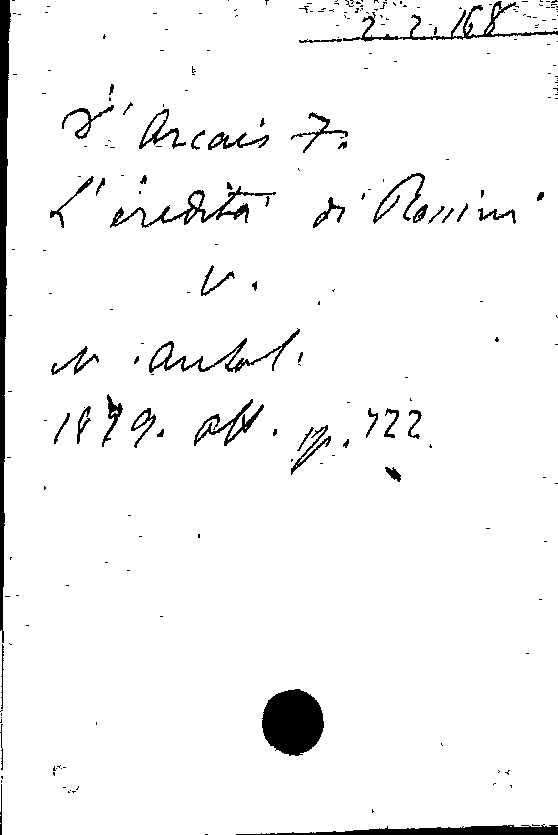 2.2.168
D'Arcais F.
L'eredità di Rossini
V.
N. Antol.
1879. ott. p. 722